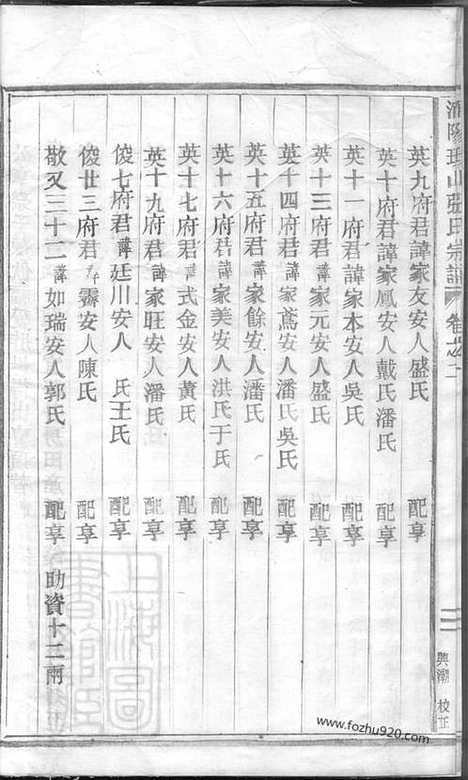 浦陽理山張氏宗譜 卷之二
英九府君諱家友安人盛氏 配享
英十府君諱家鳳安人戴氏潘氏 配享
英十一府君諱家本安人吳氏 配享
英十三府君諱家元安人盛氏 配享
英十四府君諱家鳶安人潘氏吳氏 配享
英十五府君諱家餘安人潘氏 配享
英十六府君諱家美安人洪氏于氏 配享
英十七府君諱式金安人黃氏 配享
英十九府君諱家旺安人潘氏 配享
俊七府君諱廷川安人 氏王氏 配享
俊廿三府君 霽安人陳氏 配享
敬又三十二諱如瑞安人郭氏 配享 助資十二兩
三
興潮 校正
上海圖書館藏
www.fozhu920.com